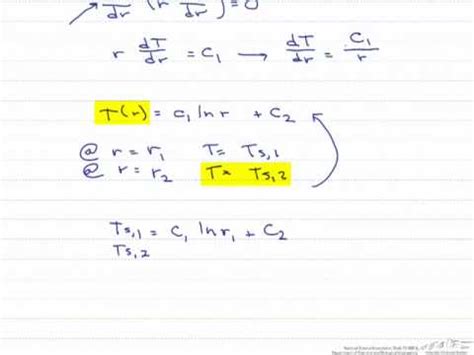 d/dr (r dT/dr) = 0
r dT/dr = C₁ → dT/dr = C₁/r
T(r) = C₁ ln r + C₂
@ r = r₁ T = Ts,1
@ r = r₂ T = Ts,2
Ts,1 = C₁ ln r₁ + C₂
Ts,2